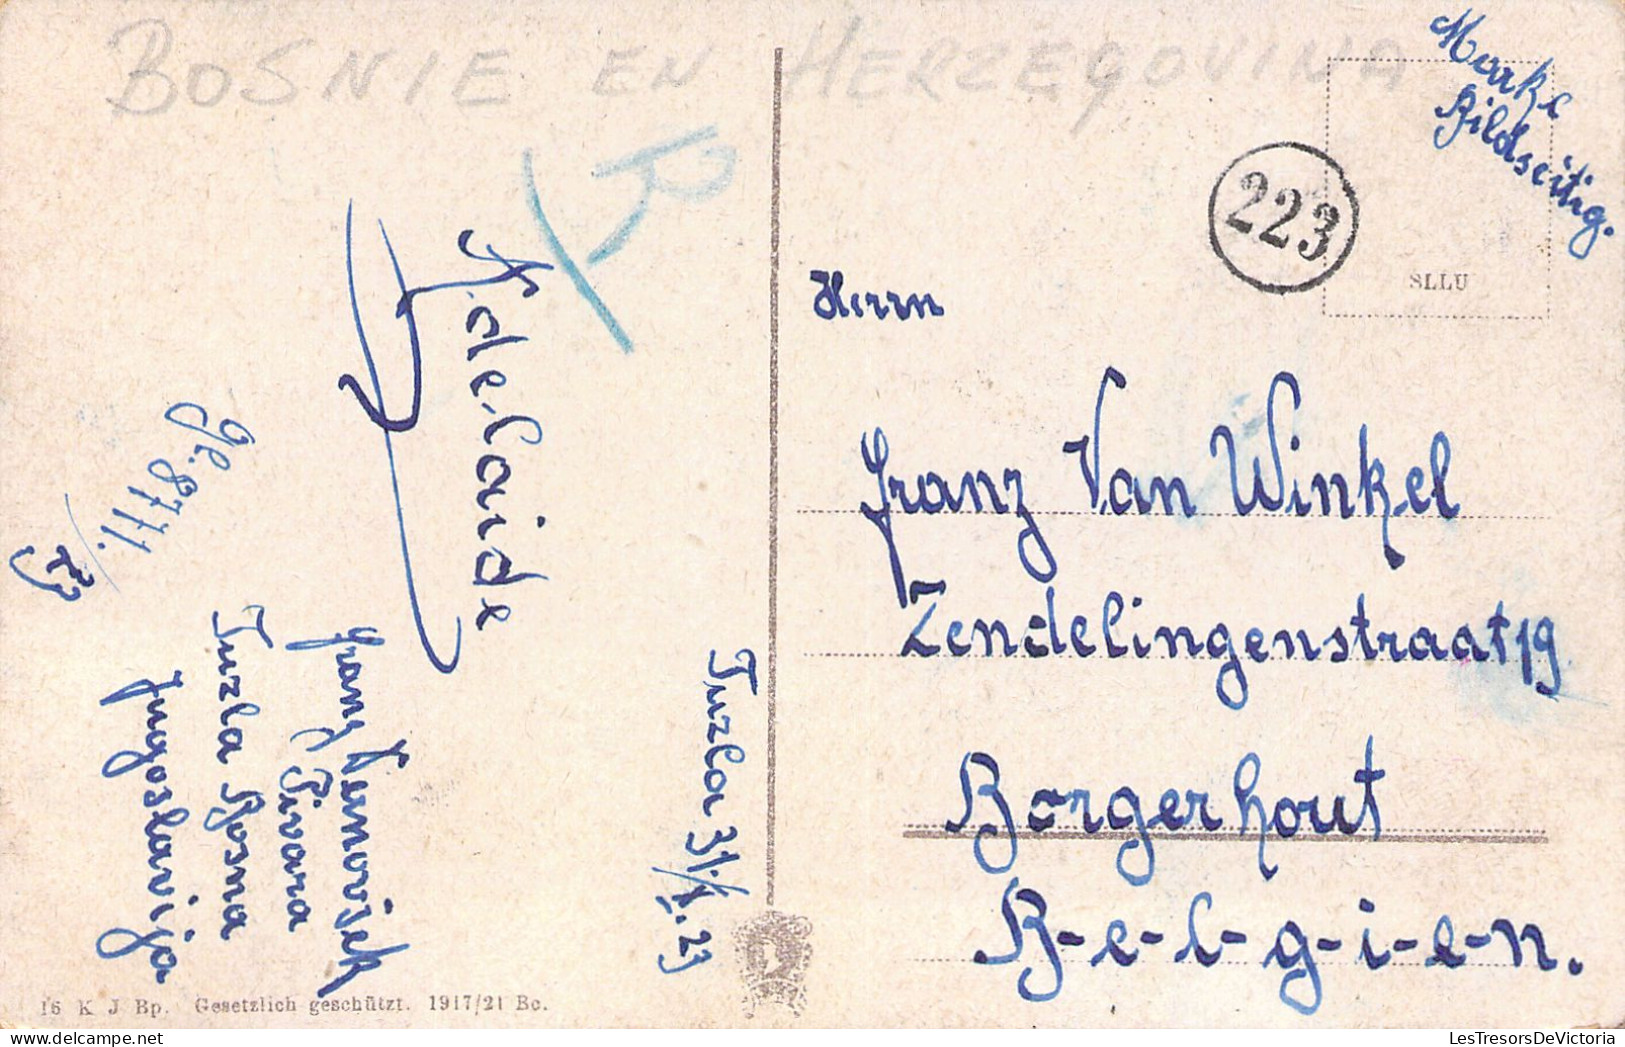 BOSNIE EN HERZEGOVINA
Marke
Bildseitig.
223
SLLU
R
Herrn
Franz Van Winkel
Zendelingenstraat 19
Borgerhout
B-e-l-g-i-e-n.
Adelaide
Tuzla 31/X. 23
gl. 8771.
Franz
Pivara
Tuzla Bosna
Jugoslavija
16 K J Bp. Gesetzlich geschützt. 1917/21 Bc.
LesTresorsDeVictoria